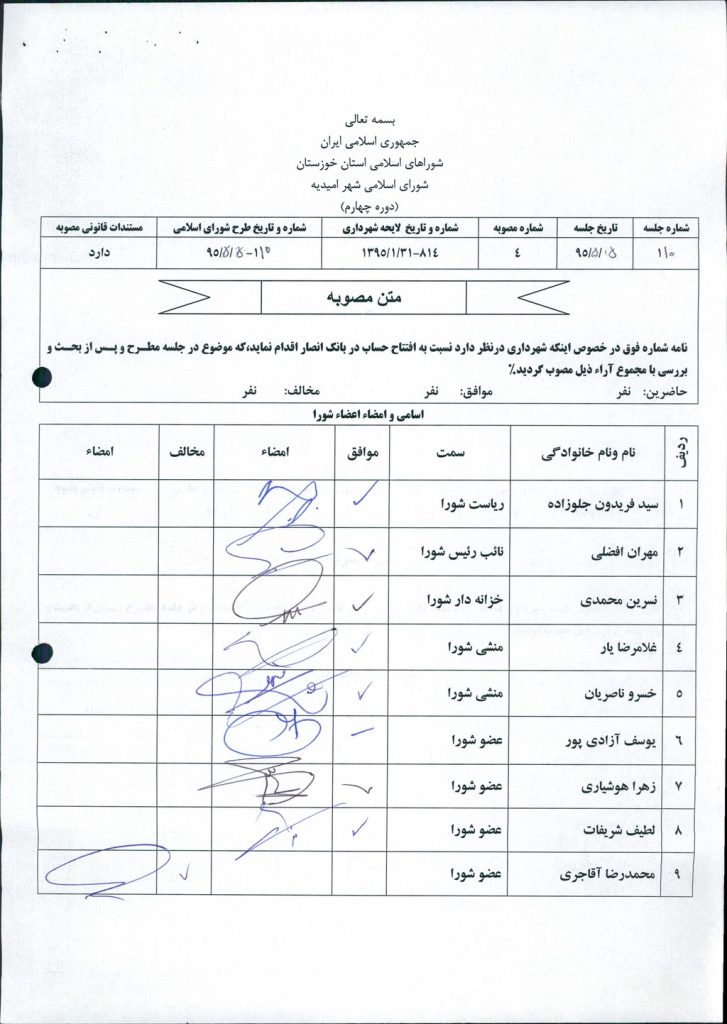 بسمه تعالی
جمهوری اسلامی ایران
شوراهای اسلامی استان خوزستان
شورای اسلامی شهر امیدیه
(دوره چهارم)
شماره جلسه تاریخ جلسه شماره مصوبه شماره و تاریخ لایحه شهرداری شماره و تاریخ طرح شورای اسلامی مستندات قانونی مصوبه
۹۵/۵/۰۵ ۴ ۱۳۹۵/۱/۳۱-۸۱۴ دارد
متن مصوبه
نامه شماره فوق در خصوص اینکه شهرداری درنظر دارد نسبت به افتتاح حساب در بانک انصار اقدام نماید،که موضوع در جلسه مطرح و پس از بحث و
بررسی با مجموع آراء ذیل مصوب گردید.٪
حاضرین: نفر موافق: نفر مخالف: نفر
اسامی و امضاء اعضاء شورا
ردیف نام ونام خانوادگی سمت موافق امضاء مخالف امضاء
۱ سید فریدون جلوزاده ریاست شورا
۲ مهران افضلی نائب رئیس شورا
۳ نسرین محمدی خزانه دار شورا
۴ غلامرضا یار منشی شورا
۵ خسرو ناصریان منشی شورا
۶ یوسف آزادی پور عضو شورا
۷ زهرا هوشیاری عضو شورا
۸ لطیف شریفات عضو شورا
۹ محمدرضا آقاجری عضو شورا